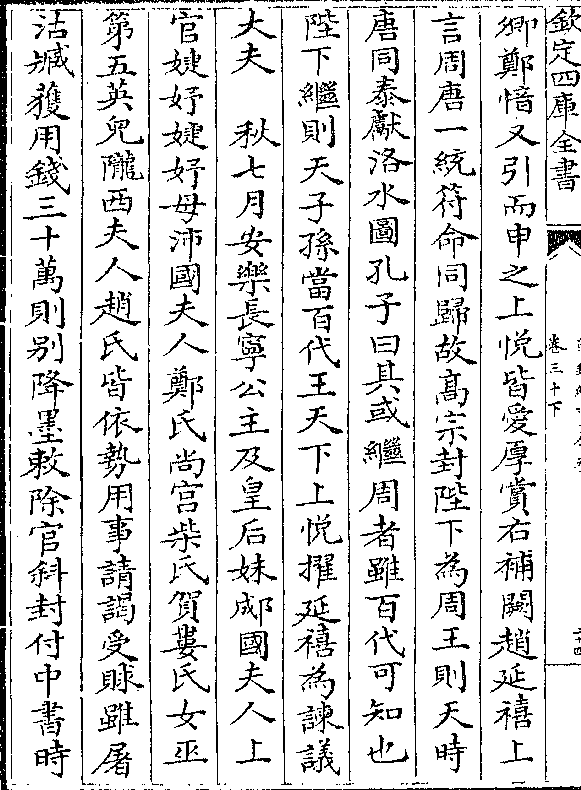 欽定四庫全書
卷三十下
卿鄭愔又引而申之上悅皆受厚賞右補闕趙延禧上
言周唐一統符命同歸故高宗封陛下為周王則天時
唐同泰獻洛水圖孔子曰其或繼周者雖百代可知也
陛下繼則天子孫當百代王天下上悅擢延禧為諫議
大夫　秋七月安樂長寧公主及皇后妹郕國夫人上
官婕妤婕妤母沛國夫人鄭氏尚宫柴氏賀婁氏女巫
第五英兒隴西夫人趙氏皆依勢用事請謁受賕雖屠
沽臧獲用錢三十萬則别降墨敕除官斜封付中書時